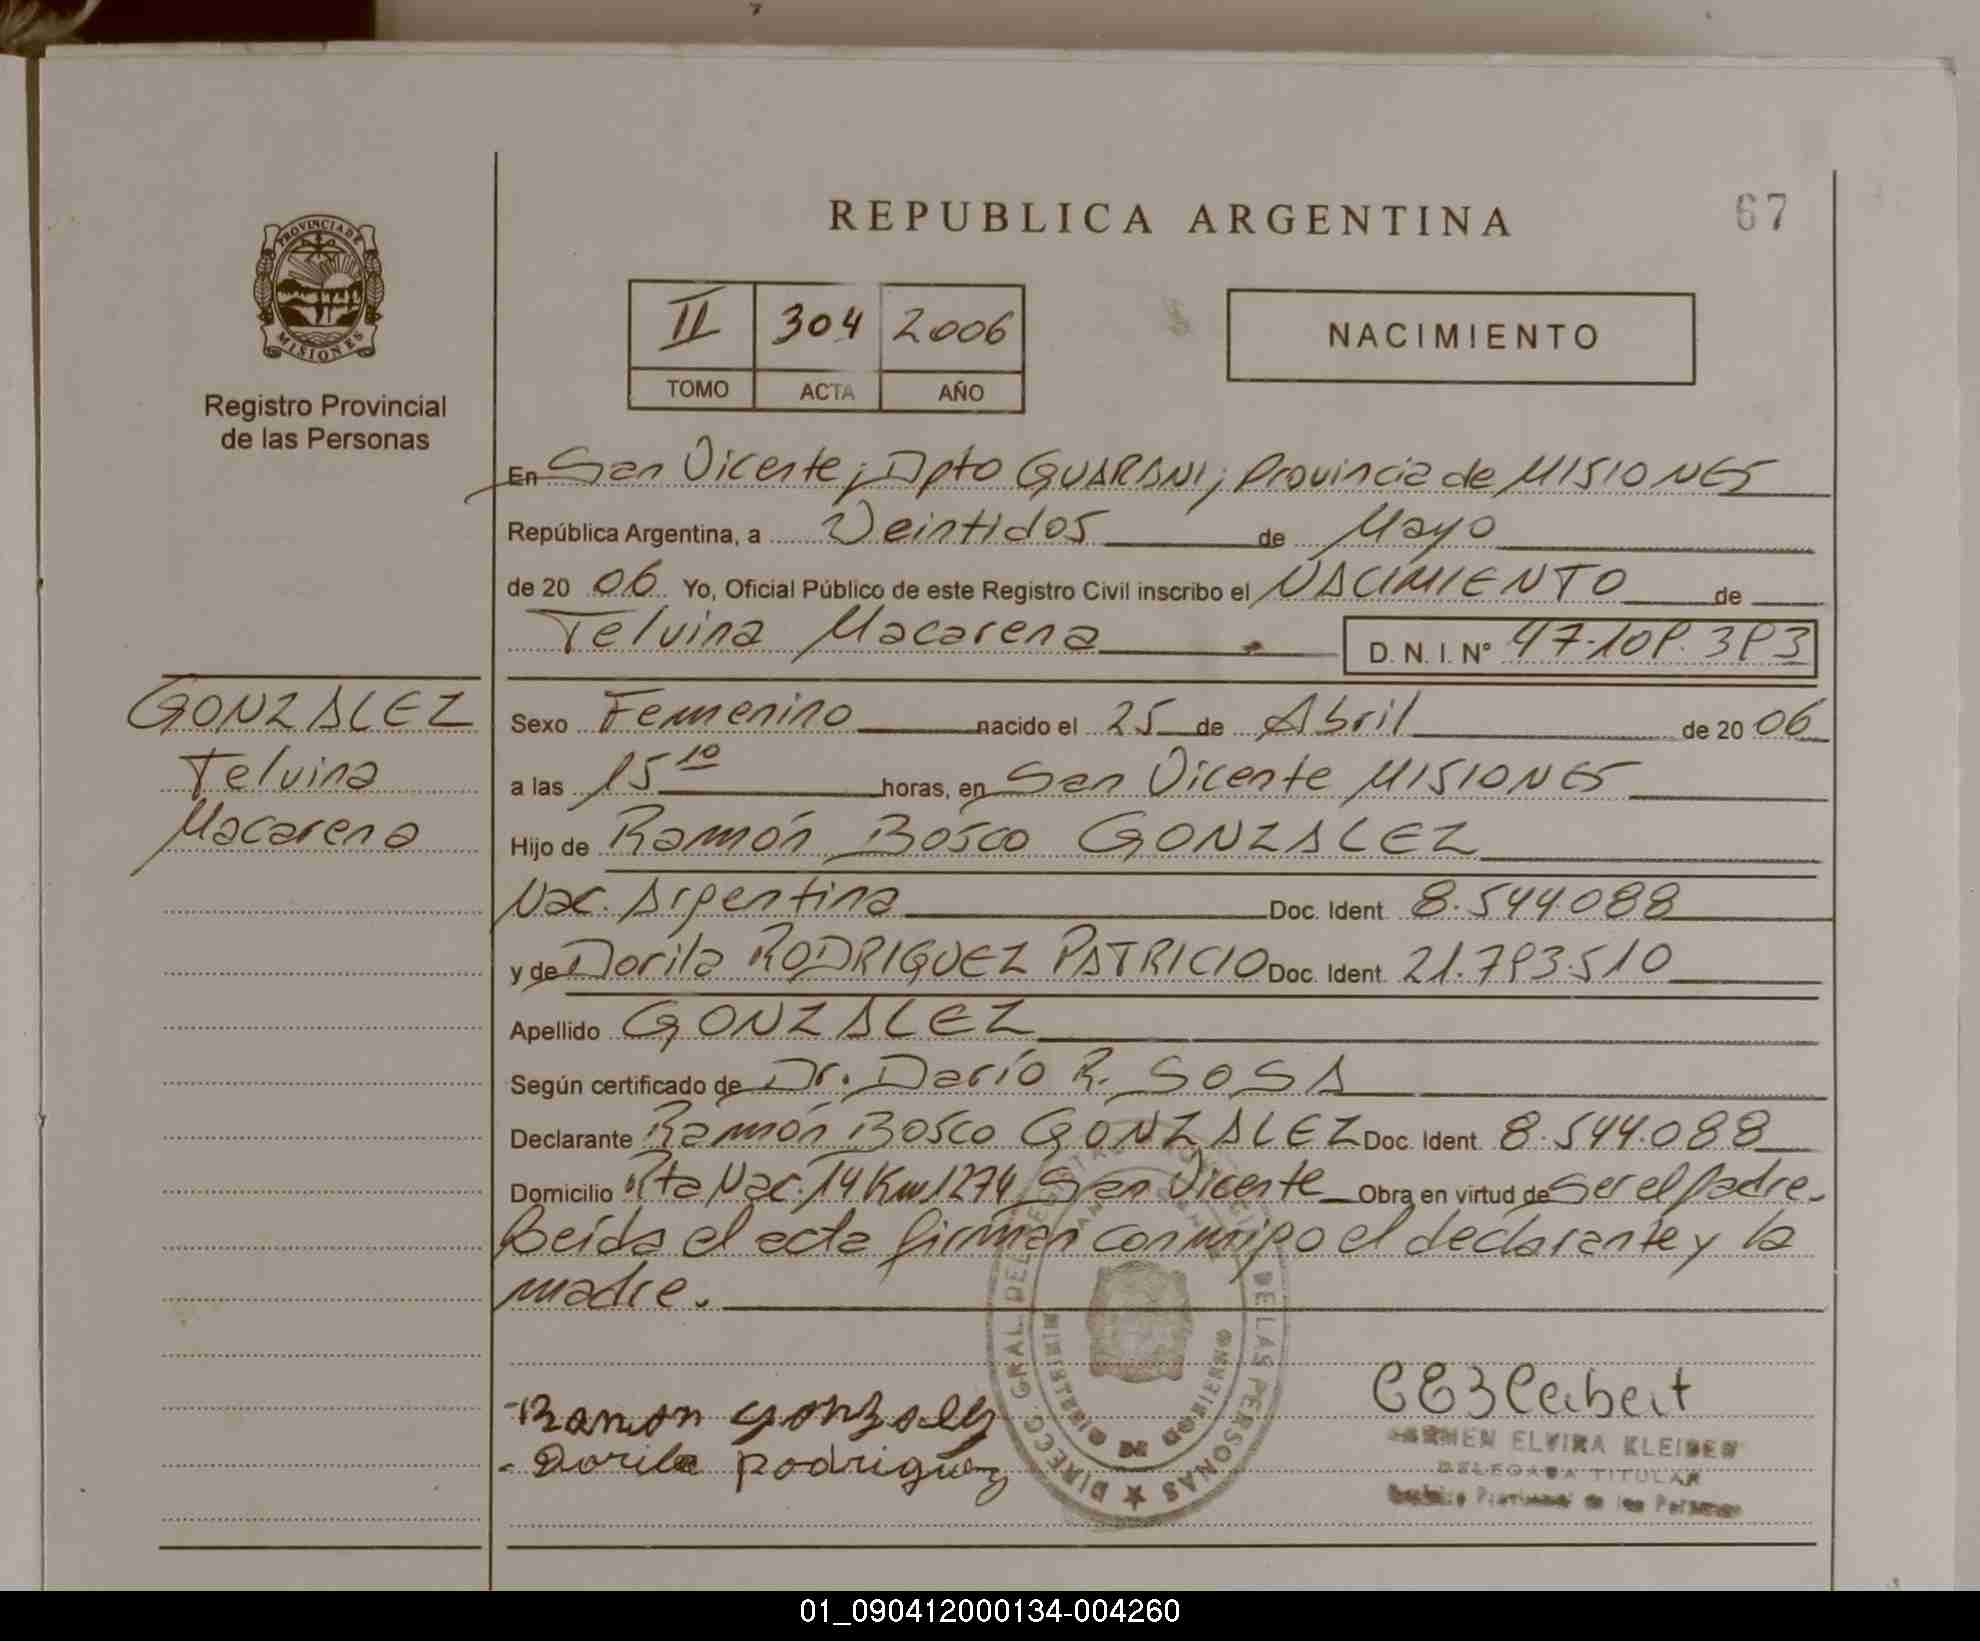 REPUBLICA ARGENTINA
67
PROVINCIA DE
MISIONES
Registro Provincial
de las Personas
II 304 2006
TOMO ACTA AÑO
NACIMIENTO
En San Vicente; Dpto GUARANI; Provincia de MISIONES
República Argentina, a Veintidos de Mayo
de 20 06 Yo, Oficial Público de este Registro Civil inscribo el NACIMIENTO de
Telvina Macarena
D. N. I. Nº 47.109.393
GONZALEZ
Telvina
Macarena
Sexo Femenino nacido el 25 de Abril de 20 06
a las 15 10 horas, en San Vicente MISIONES
Hijo de Ramón Bosco GONZALEZ
Nac. Argentina Doc. Ident. 8.544.088
y de Dorila RODRIGUEZ PATRICIO Doc. Ident. 21.793.510
Apellido GONZALEZ
Según certificado de Dr. Darío R. SOSA
Declarante Ramón Bosco GONZALEZ Doc. Ident. 8.544.088
Domicilio Rta Nac. 14 Km 1274 San Vicente Obra en virtud de Ser el padre.
Leída el acta firman conmigo el declarante y la
madre.
Ramon Gonzalez
Dorila Rodriguez
DIRECC. GRAL. DEL REGISTRO PROVINCIAL DE LAS PERSONAS
MINISTERIO DE GOBIERNO
CARMEN ELVIRA KLEIBER
DELEGADA TITULAR
Registro Provincial de las Personas
01_090412000134-004260